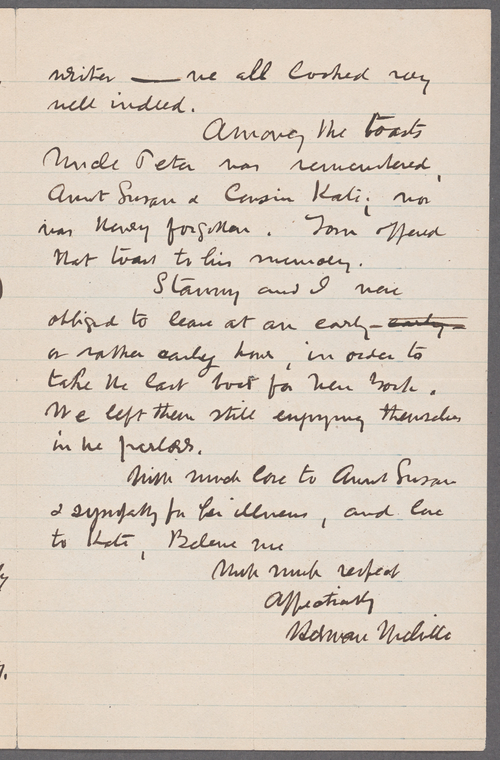 writer — we all looked very
well indeed.
Among the toasts
Uncle Peter was remembered,
Aunt Susan & Cousin Kate; nor
was Henry forgotten. Tom offered
that toast to his memory.
Stanny and I were
obliged to leave at an early early
or rather early hour, in order to
take the last boat for New York.
We left them still enjoying themselves
in the parlors.
With much love to Aunt Susan
& sympathy for her illness, and love
to Kate, Believe me
With much respect
Affectionately
Herman Melville